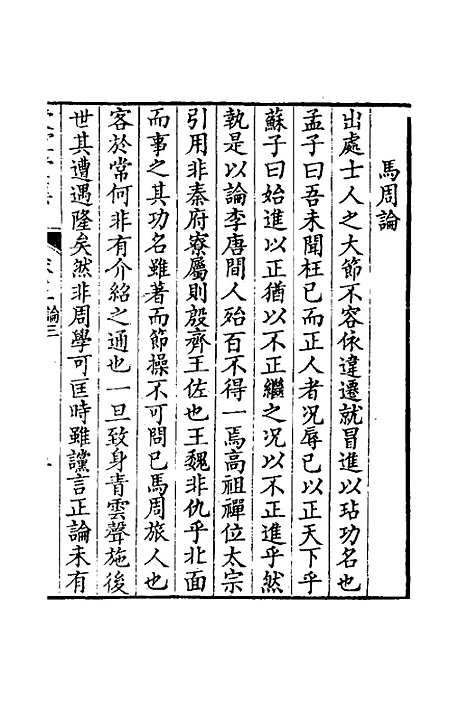 馬周論
出處士人之大節不容依違遷就冒進以玷功名也
孟子曰吾未聞枉已而正人者况辱已以正天下乎
蘇子曰始進以正猶以不正繼之况以不正進乎然
執是以論李唐間人殆百不得一焉高祖禪位太宗
引用非秦府寮屬則殷齊王佐也王魏非仇乎北面
而事之其功名雖著而節操不可問已馬周旅人也
客於常何非有介紹之通也一旦致身青雲聲施後
世其遭遇隆矣然非周學可匡時雖讜言正論未有
論三